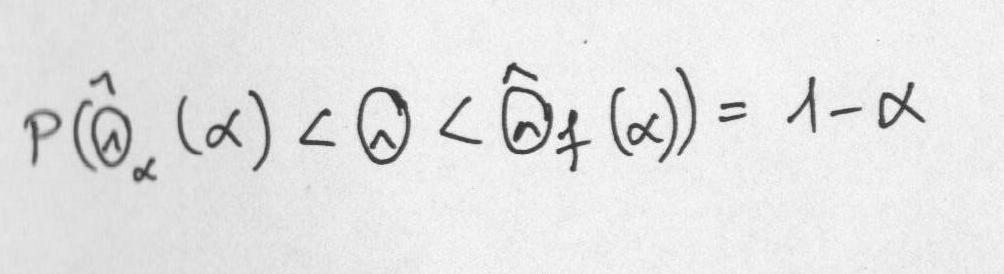 P(Θ̂_α (α) < Θ < Θ̂_f (α)) = 1 - α